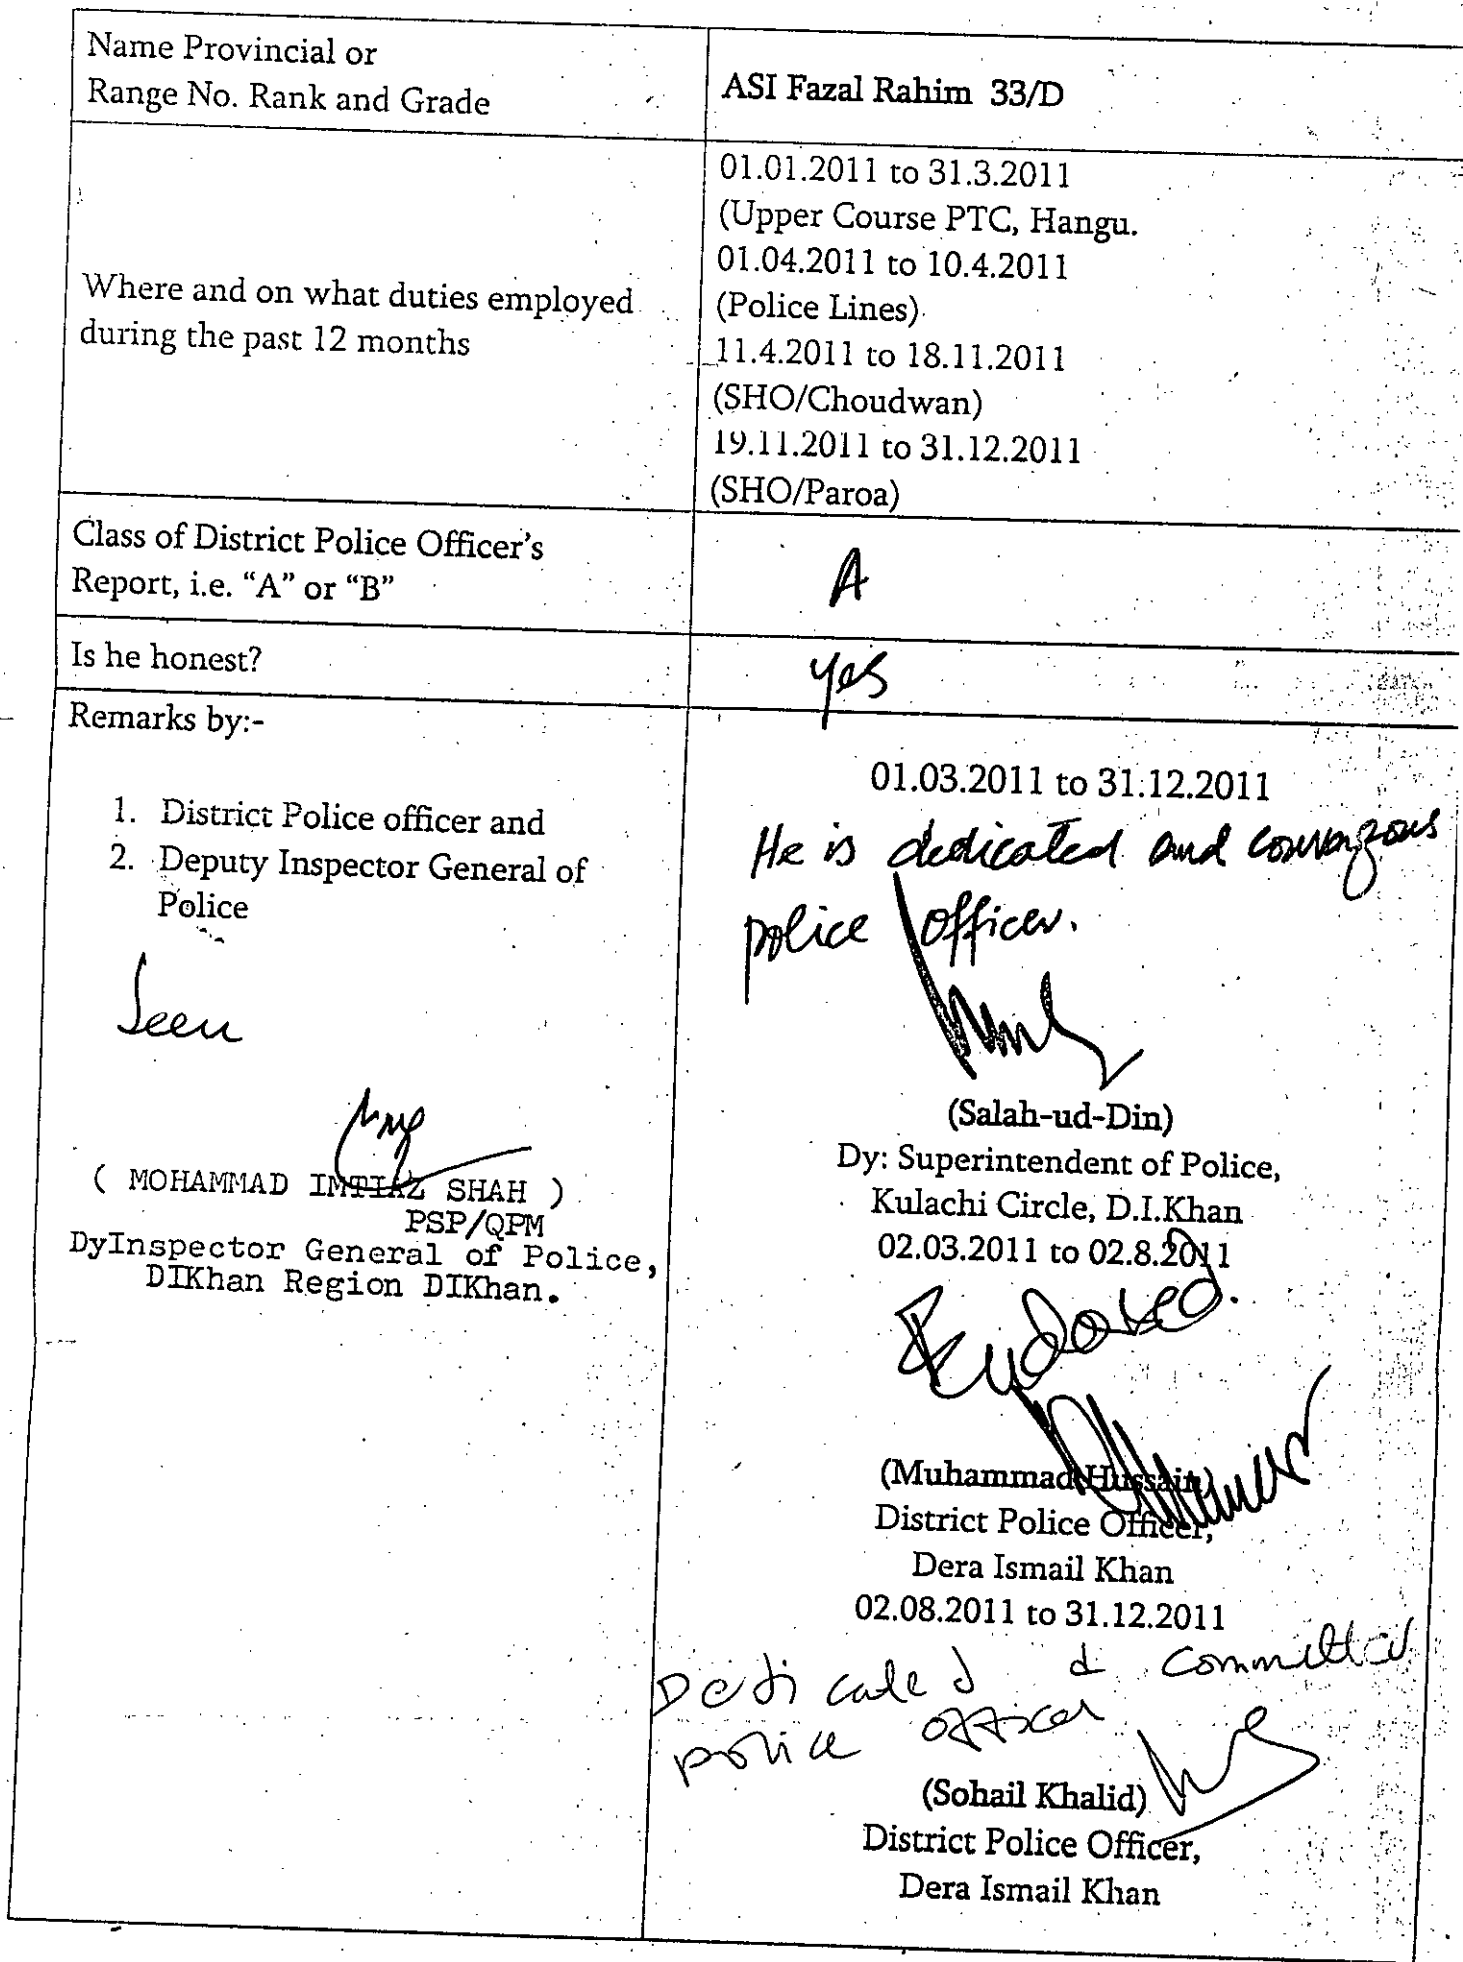 Name Provincial or
Range No. Rank and Grade
ASI Fazal Rahim 33/D
Where and on what duties employed
during the past 12 months
01.01.2011 to 31.3.2011
(Upper Course PTC, Hangu.
01.04.2011 to 10.4.2011
(Police Lines)
11.4.2011 to 18.11.2011
(SHO/Choudwan)
19.11.2011 to 31.12.2011
(SHO/Paroa)
Class of District Police Officer's
Report, i.e. “A” or “B”
A
Is he honest?
yes
Remarks by:-
1. District Police officer and
2. Deputy Inspector General of
Police
Seen
( MOHAMMAD IMTIAZ SHAH )
PSP/QPM
DyInspector General of Police,
DIKhan Region DIKhan.
01.03.2011 to 31.12.2011
He is dedicated and courageous
police officer.
(Salah-ud-Din)
Dy: Superintendent of Police,
Kulachi Circle, D.I.Khan
02.03.2011 to 02.8.2011
Endorsed.
(Muhammad Hussain)
District Police Officer,
Dera Ismail Khan
02.08.2011 to 31.12.2011
Dedicated & committed
police officer
(Sohail Khalid)
District Police Officer,
Dera Ismail Khan